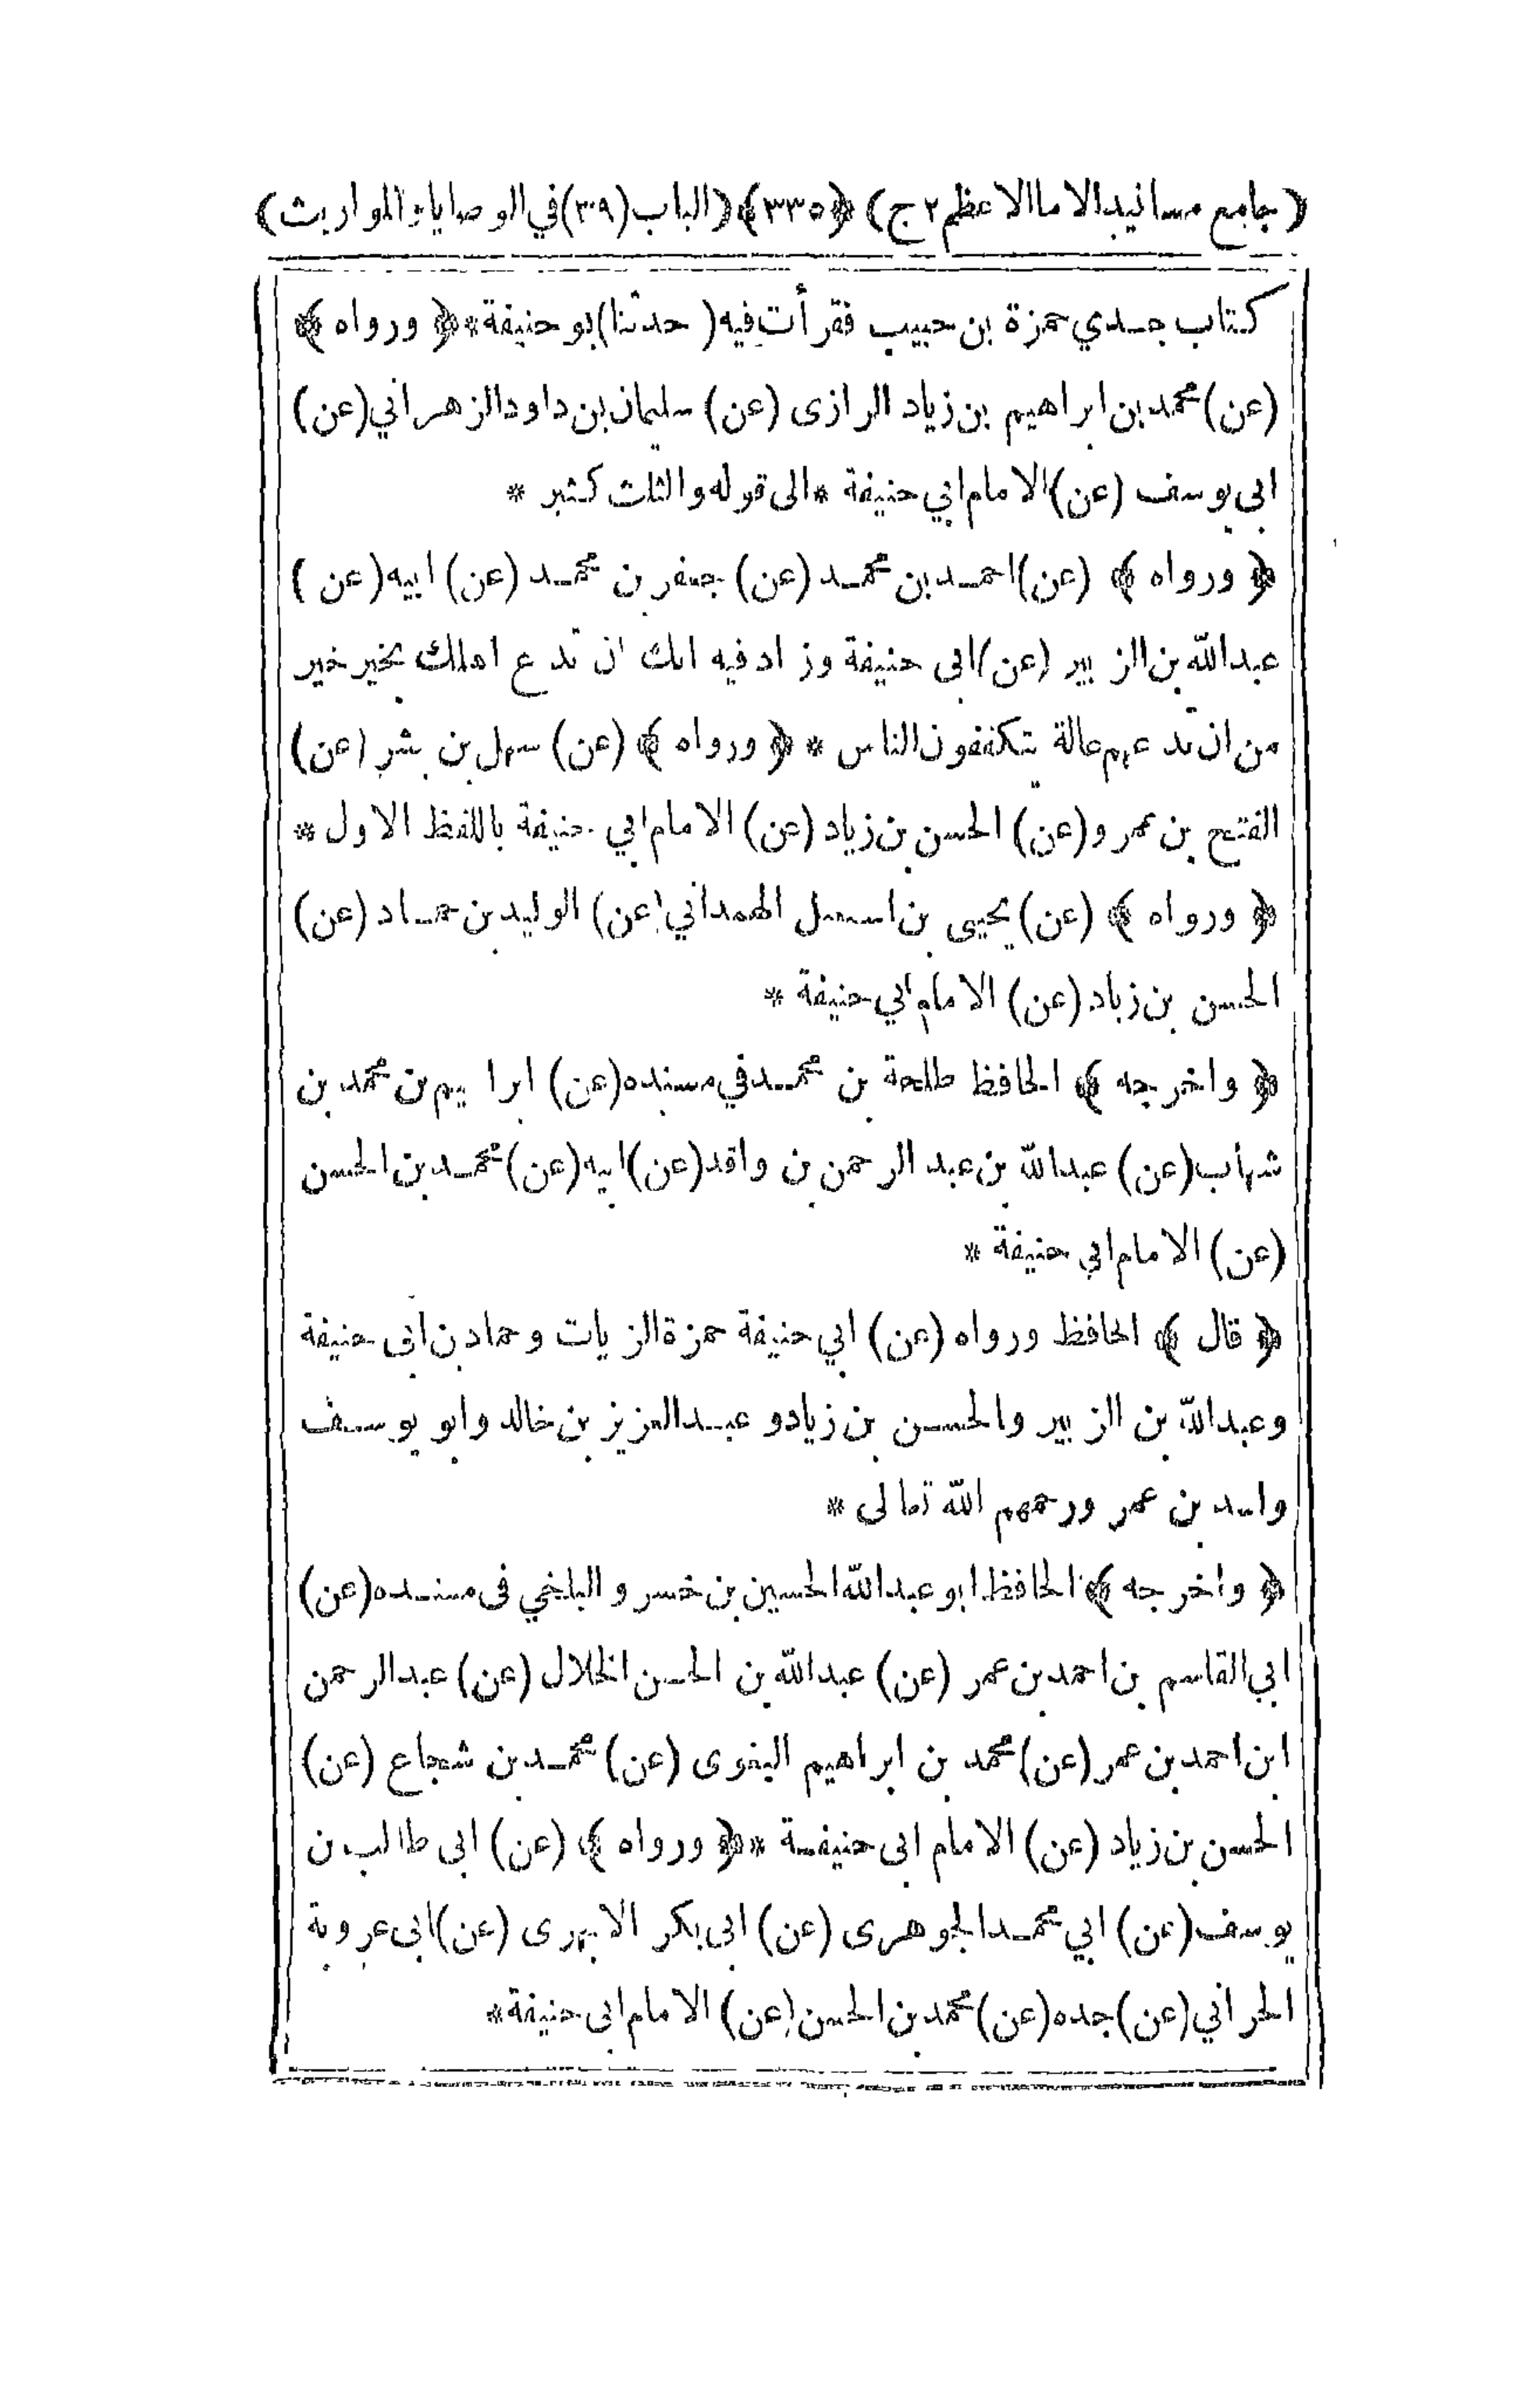 (جامع مسانيد الامام الاعظم ٢ ج) ﴿٣٣٥﴾ (الباب (٣٩) في الوصايا والمواريث)
كتاب جدي حمزة بن حبيب فقرأت فيه (حدثنا) ابو حنيفة * ﴿ ورواه ﴾
(عن) محمد بن ابراهيم بن زياد الرازى (عن) سليمان بن داود الزهراني (عن)
ابى يوسف (عن) الامام ابي حنيفة * الى قوله والثلث كثير *
﴿ ورواه ﴾ (عن) احمد بن محمد (عن) جعفر بن محمد (عن) ابيه (عن)
عبد الله بن الزبير (عن) ابى حنيفة وزاد فيه انك ان تدع اهلك بخير خير
من ان تدعهم عالة يتكففون الناس * ﴿ ورواه ﴾ (عن) سهل بن بشر (عن)
الفتح بن عمرو (عن) الحسن بن زياد (عن) الامام ابي حنيفة باللفظ الاول *
﴿ ورواه ﴾ (عن) يحيى بن اسمعيل الهمداني (عن) الوليد بن حماد (عن)
الحسن بن زياد (عن) الامام ابي حنيفة *
﴿ واخرجه ﴾ الحافظ طلحة بن محمد في مسنده (عن) ابراهيم بن محمد بن
شهاب (عن) عبد الله بن عبد الرحمن بن واقد (عن) ابيه (عن) محمد بن الحسن
(عن) الامام ابي حنيفة *
﴿ قال ﴾ الحافظ ورواه (عن) ابي حنيفة حمزة الزيات وحماد بن ابى حنيفة
وعبد الله بن الزبير والحسن بن زياد و عبد العزيز بن خالد وابو يوسف
واسد بن عمر ورحمهم الله تعالى *
﴿ واخرجه ﴾ الحافظ ابو عبد الله الحسين بن خسرو البلخي فى مسنده (عن)
ابي القاسم بن احمد بن عمر (عن) عبد الله بن الحسن الخلال (عن) عبد الرحمن
ابن احمد بن عمر (عن) محمد بن ابراهيم البغوى (عن) محمد بن شجاع (عن)
الحسن بن زياد (عن) الامام ابى حنيفة * ﴿ ورواه ﴾ (عن) ابى طالب بن
يوسف (عن) ابي محمد الجوهرى (عن) ابى بكر الابهرى (عن) ابى عروبة
الحراني (عن) جده (عن) محمد بن الحسن (عن) الامام ابى حنيفة *